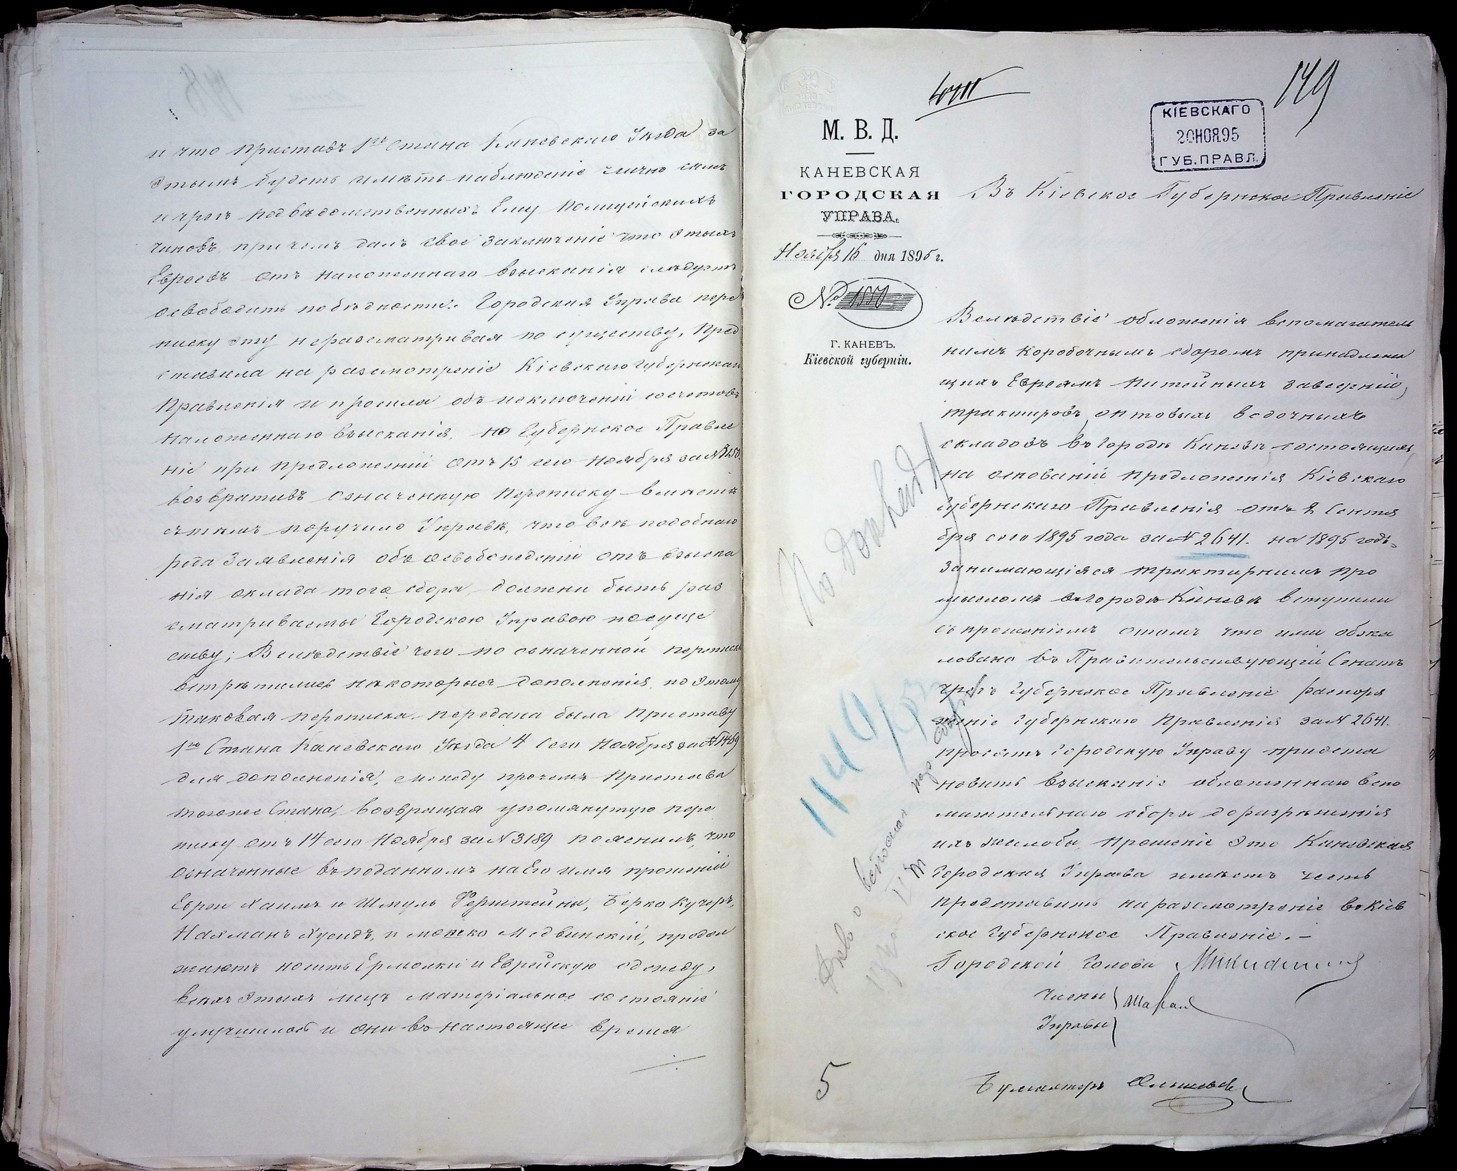 и что Приставъ 1го Стана Каневскаго Уѣзда за
этимъ будетъ имѣть наблюденіе лично самъ
и чрезъ подвѣдомственныхъ Ему Полицейскихъ
чиновъ причемъ далъ свое заключеніе что этихъ
Евреевъ отъ наложеннаго взысканія слѣдуетъ
освободить по бѣдности. Городская Управа пере
писку эту неразсматривая по существу, Пред
ставила на разсмотреніе Кіевскаго Губернскаго
Правленія и просила объ исключеніи
наложеннаго взысканія, но Губернское Правле
ніе при предложеніи отъ 15 сего Ноября за №
возвративъ означенную переписку вмѣстѣ
съ тѣмъ поручило Управѣ, что всѣ подобнаго
рода Заявленія объ освобожденіи отъ взыска
нія оклада того сбора должны быть раз
сматриваемы Городскою Управою по суще
ству; Вслѣдствіе чего по означенной переписки
встрѣтились нѣкоторыя дополненія, по этому
таковая переписка передана была Приставу
1го Стана Каневскаго Уѣзда 4 сего Ноября за № 1469
для дополненія, между прочемъ Приставъ
тогоже Стана, возвращая упомянутую пере
писку отъ 14 сего Ноября за № 3189 пояснилъ, что
означенные въ поданномъ на Его имя прошеніи
Евреи Хаимъ и Шмуль Фернштейны, Берко Кучеръ,
Нахманъ и Мошко Медвинскій, продол
жаютъ носить Ермолки и Еврейскую одежду,
всѣхъ этихъ лицъ матеріальное состояніе
улучшилось и они въ настоящее время
149
КІЕВСКАГО
20 НОЯ 95
ГУБ. ПРАВЛ.
М. В. Д.
КАНЕВСКАЯ
ГОРОДСКАЯ
УПРАВА.
Ноября 16 дня 1895 г.
№ 1550
Г. КАНЕВЪ.
Кіевской губерніи.
Въ Кіевское Губернское Правленіе
Вслѣдствіе обложенія вспомагатель
нимъ коробочнымъ сборомъ принадлежа
щихъ Евреямъ питейныхъ заведеній,
трактировъ оптовыхъ водочныхъ
складовъ въ Городѣ Каневѣ состоящихъ,
на основаніи предложенія Кіевскаго
Губернскаго Правленія отъ 2 Сентя
бря сего 1895 года за № 2641. на 1895 годъ,
занимающіяся трактирнымъ про
мысломъ въ городѣ Каневѣ вступили
съ прошеніемъ о томъ что ими обжа
ловано въ Правительствующій Сенатъ
чрезъ Губернское Правленіе распоря
женіе Губернскаго Правленія за № 2641.
просятъ Городскую Управу приоста
новить взысканіе обложеннаго вспо
магательнаго сбора до разрѣшенія
ихъ жалобы, прошеніе это Каневская
Городская Управа имѣетъ честь
представить на разсмотреніе въ Кіев
ское Губернское Правленіе. —
Городской Голова
Члены
Управы
Бухгалтеръ
По докладу
5